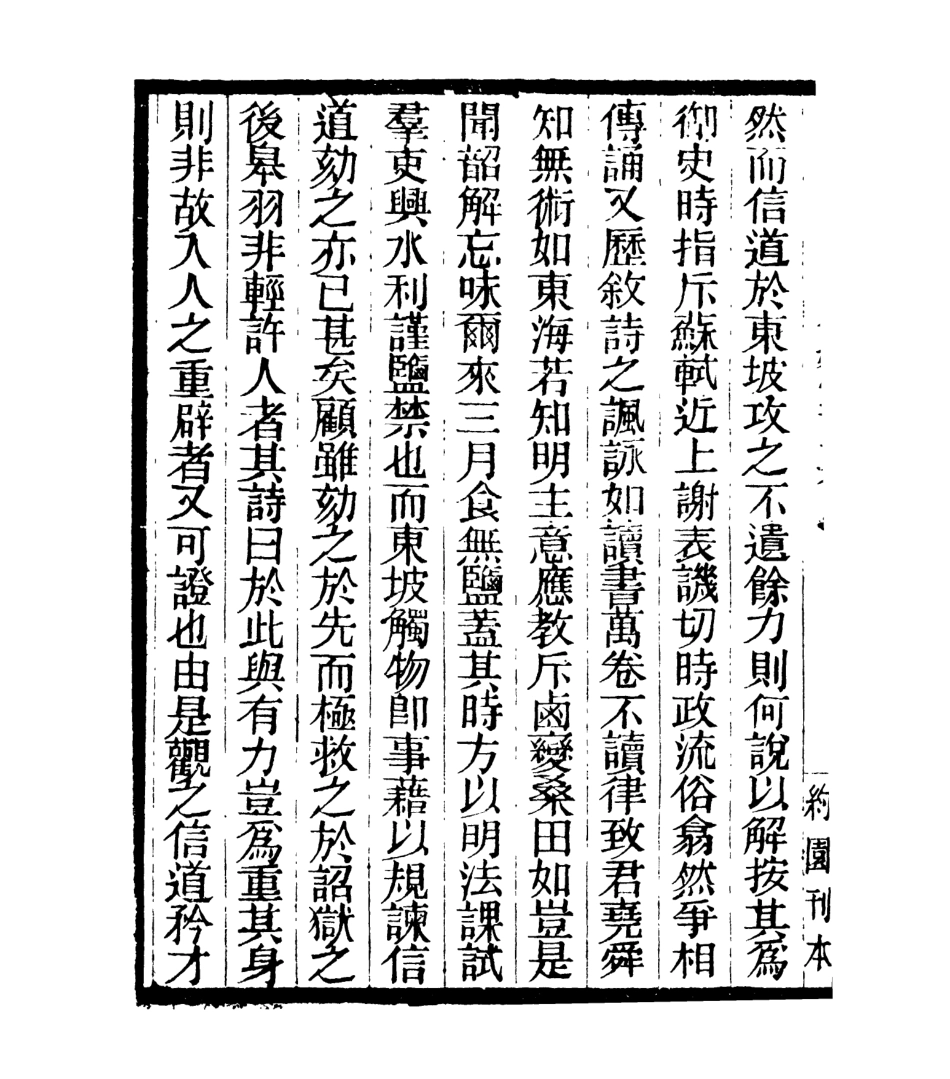 然而信道於東坡攻之不遺餘力則何說以解按其爲
御史時指斥蘇軾近上謝表譏切時政流俗翕然爭相
傳誦又歷敘詩之諷詠如讀書萬卷不讀律致君堯舜
知無術如東海若知明主意應教斥鹵變桑田如豈是
聞韶解忘味爾來三月食無鹽蓋其時方以明法課試
羣吏興水利謹鹽禁也而東坡觸物卽事藉以規諫信
道劾之亦已甚矣顧雖劾之於先而極救之於詔獄之
後臯羽非輕許人者其詩曰於此與有力豈爲重其身
則非故入人之重辟者又可證也由是觀之信道矜才
約園刊本